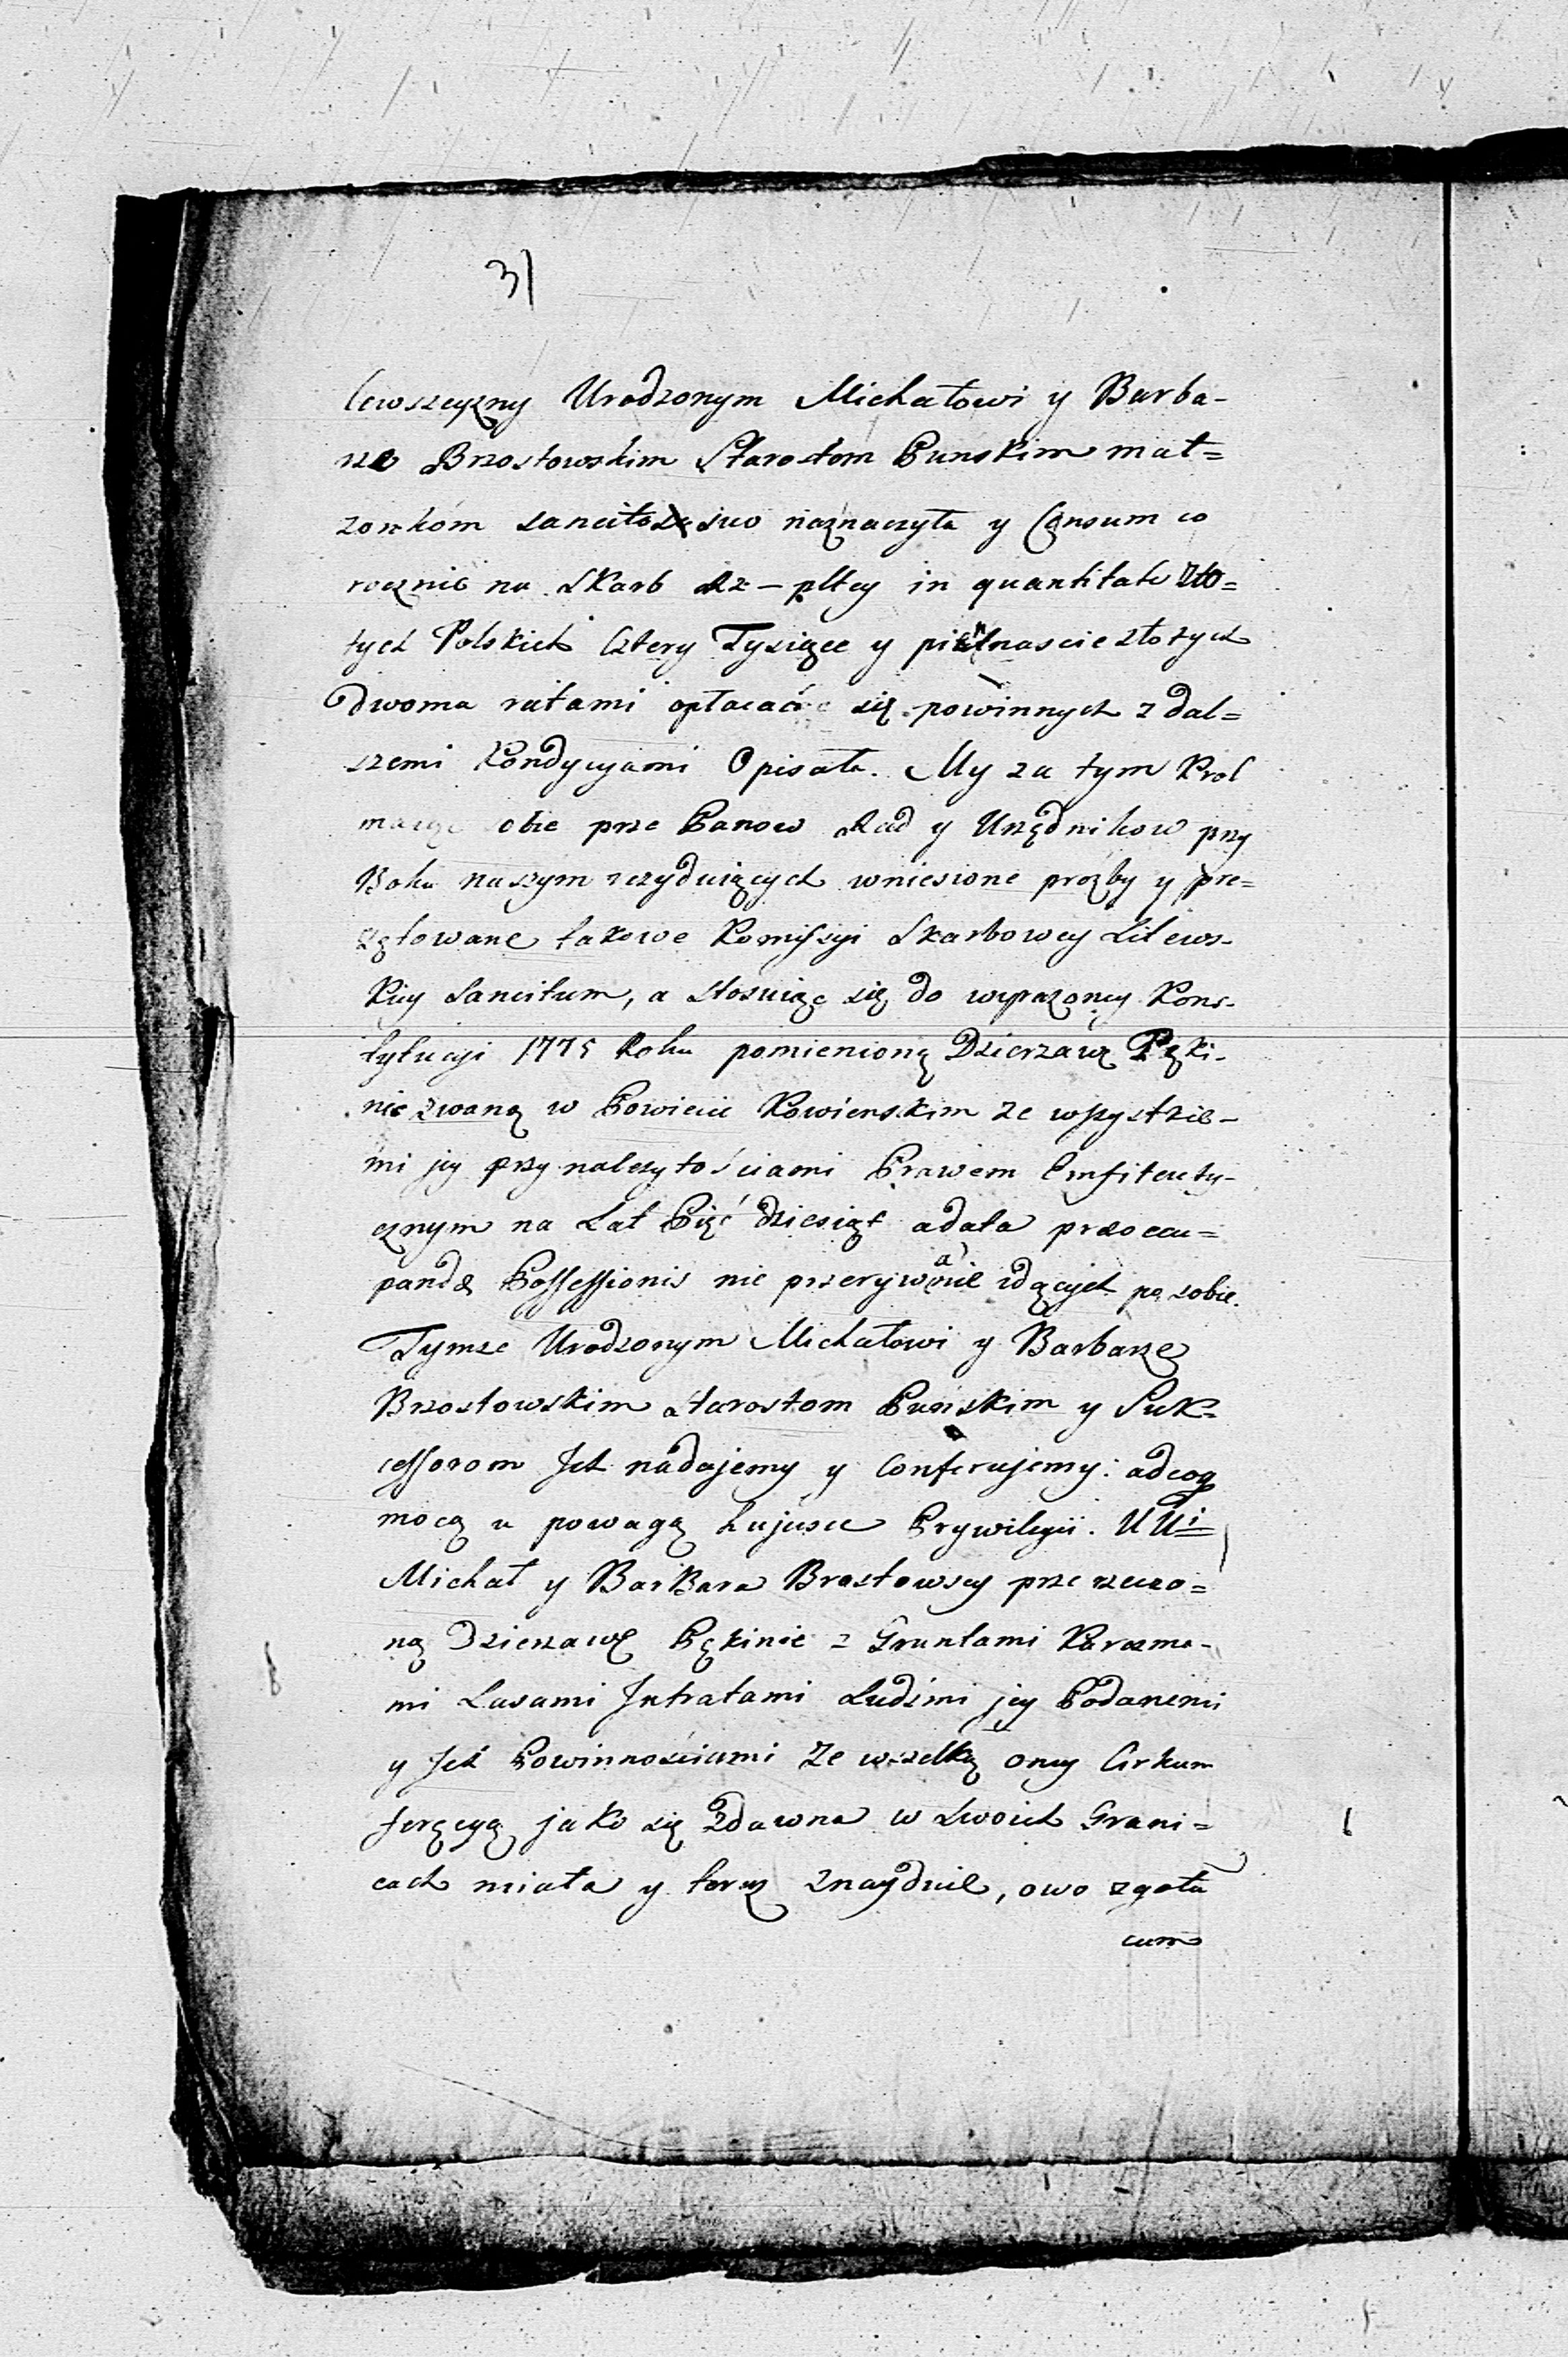 3)
lewszczyzny Urodzonym Michałowi y Barba-
rze Brzostowskim Starostom Punskim mał=
zonkóm sancito suo náznaczyła y Censum co
rocznie na Skarb Rz-pltey in quantitate Zło=
tych Polskich Cztery Tysiące y piętnascie złotych
Dwoma ratami opłacać się powinnych z dal=
szemi Kondycyjami Opisała. My za tym Krol
maiąc obie prze Panow Rad y Urzędnikow przy
Boku naszym rezyduiących wniesione prozby y pre=
zętowane takowe Komissyi Skarbowey Litews-
kiey Sancitum, a stosuiąc się do wyrazoney Kons-
tytucyi 1775 Roku pomienioną Dzierzawę Pęki-
nie zwaną w Powiecie Kowienskim ze wszystkie-
mi jey przynalezytościami Prawem Emfiteuty-
cznym na Lat Pięć dziesiąt adata præoccu=
pandæ Possessionis nie przerywanie idących po sobie.
Tymze Urodzonym Michałowi y Barbarze
Brzostowskim Starostom Puńskim y Suk-
cessorom Ich nadajemy y Conferujemy: adeoq
mocą a powagą hujusce Prywilegii. UUi
Michał y BarBara Brostowscy prze rzeczo=
ną Dzierzawę Pękinie z Gruntami Karczma-
mi Lasami Intratami Ludźmi jey Podanemi
y Ich Powinnościami Ze wszelką oney Cirkum
feręcyą jako się Zdawna w Swoich Grani=
cach miała y teraz Znayduie, owo zgoła
cum